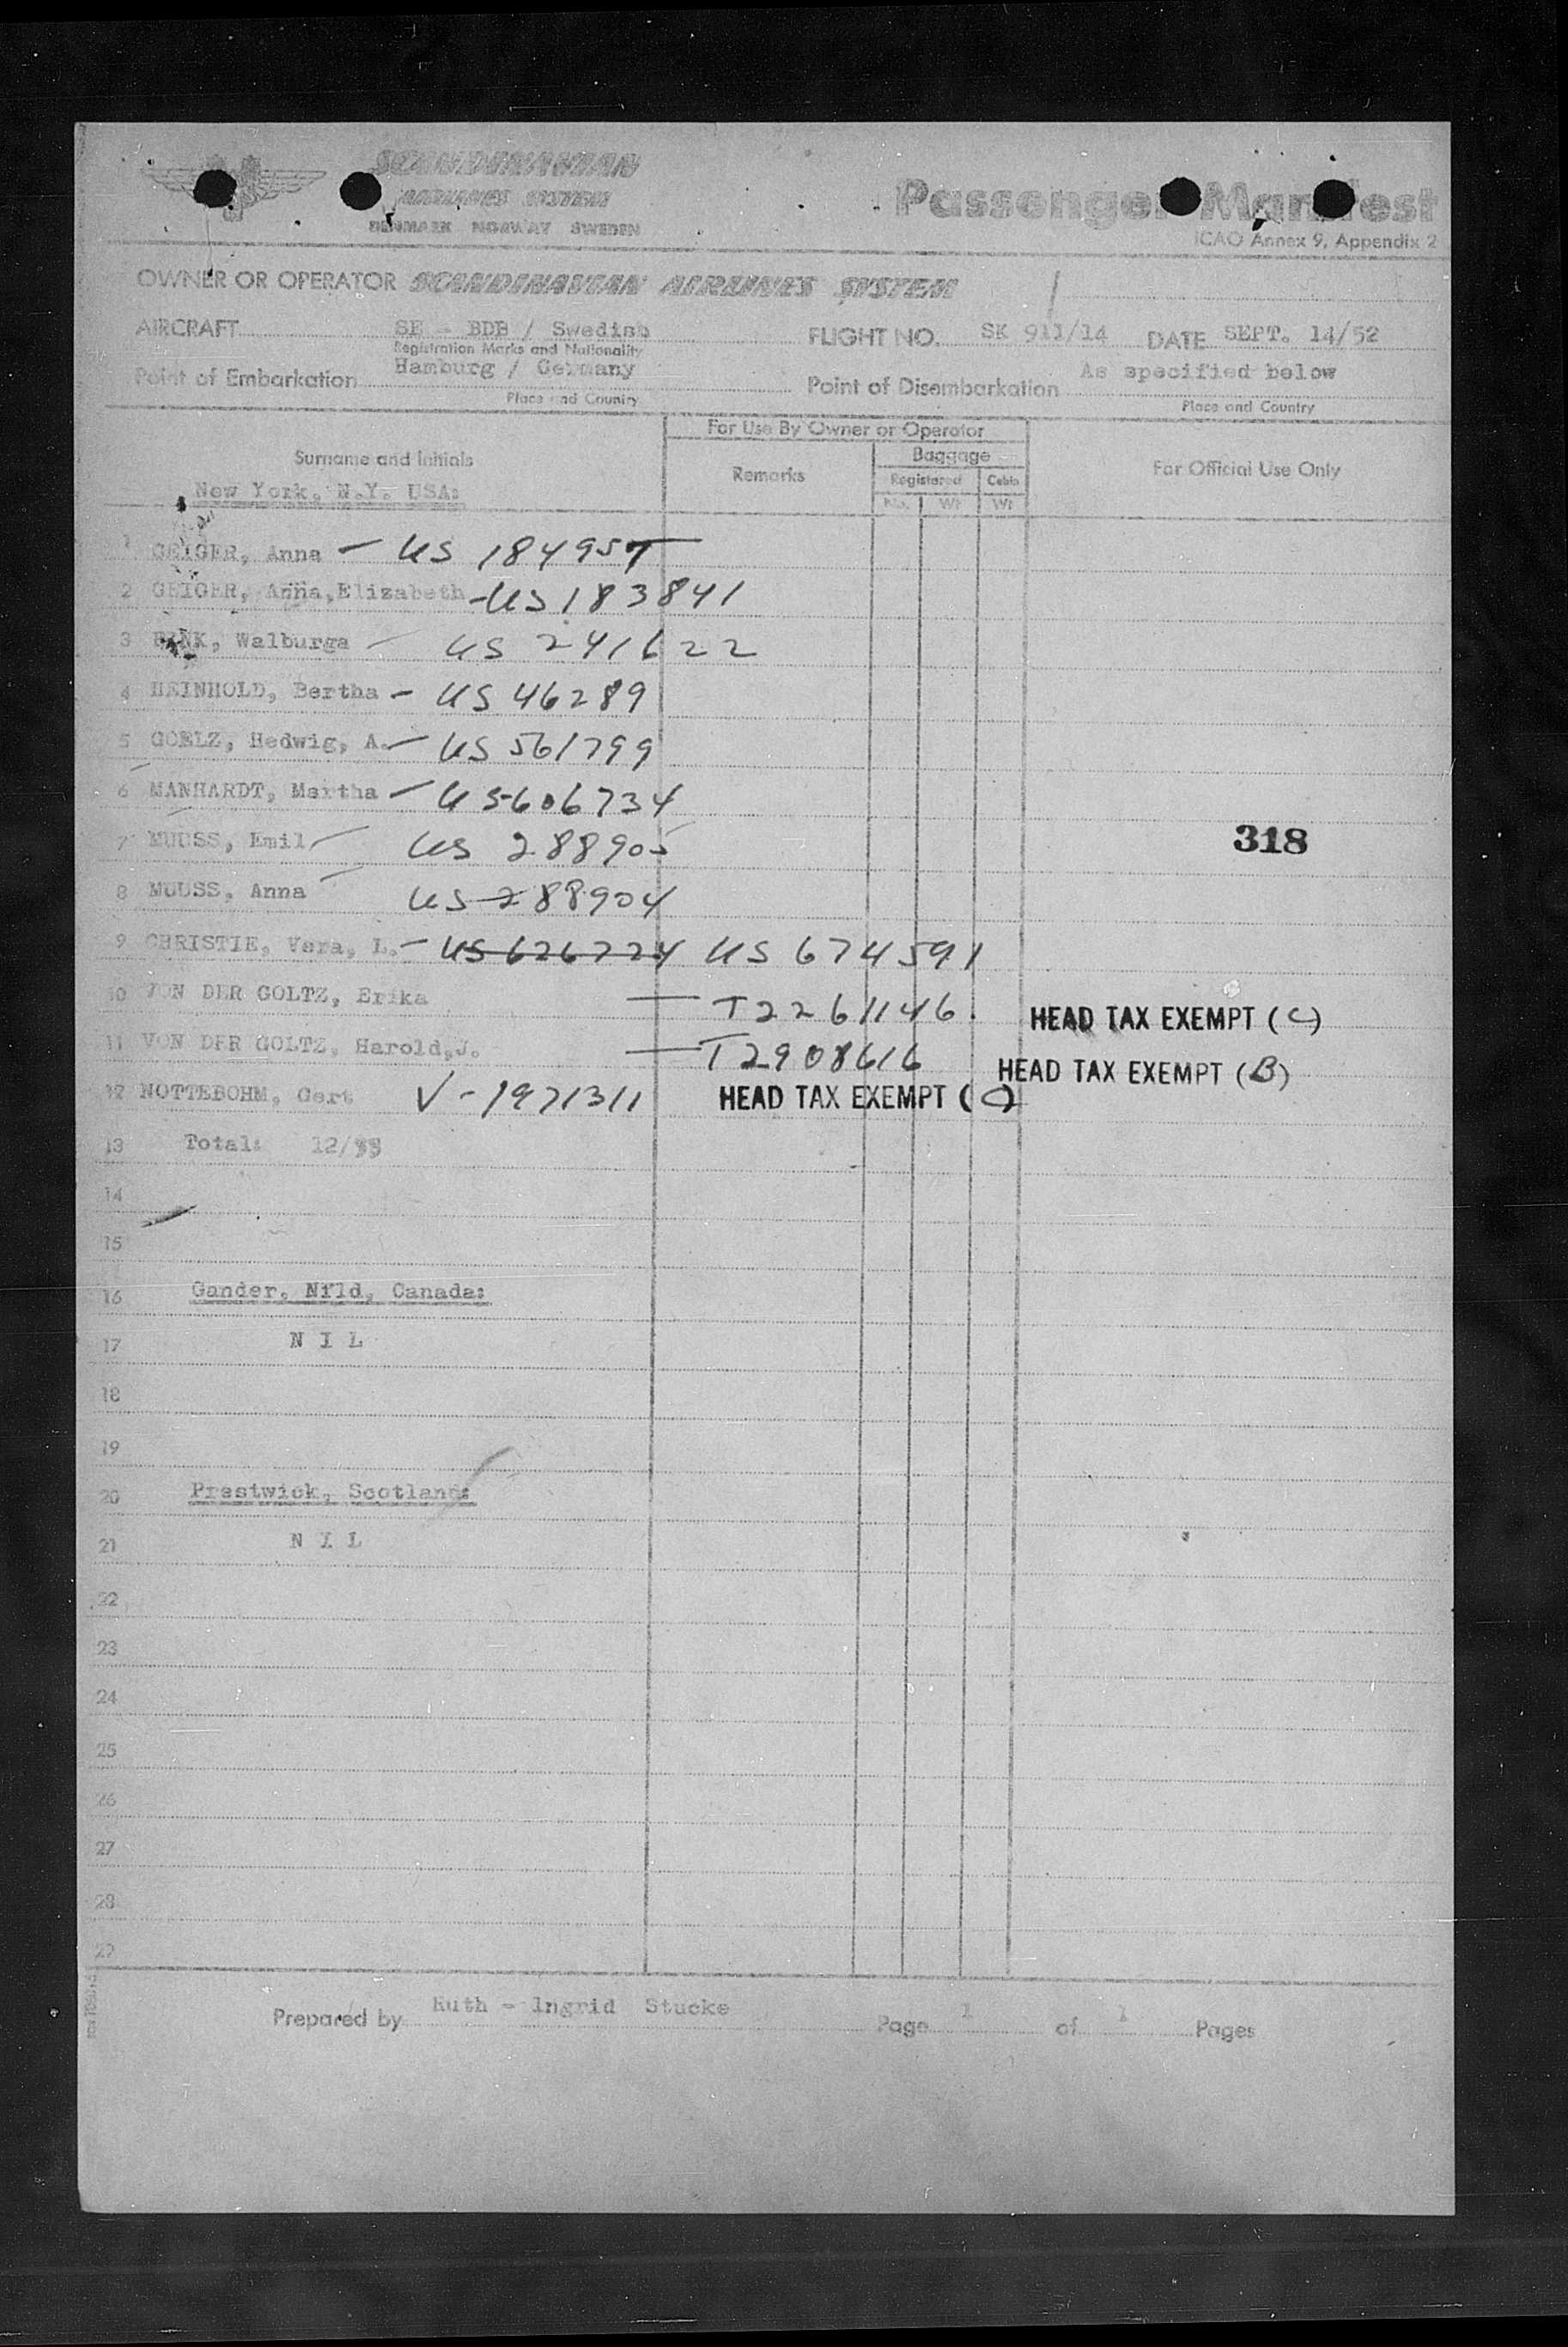 SCANDINAVIAN
AIRLINES SYSTEM
DENMARK NORWAY SWEDEN
Passenger Manifest
ICAO Annex 9, Appendix 2
OWNER OR OPERATOR SCANDINAVIAN AIRLINES SYSTEM
AIRCRAFT SE - BDB / Swedish FLIGHT NO. SK 911/14 DATE SEPT. 14/52
Registration Marks and Nationality
Point of Embarkation Hamburg / Germany Point of Disembarkation As specified below
Place and Country Place and Country
For Use By Owner or Operator
Surname and Initials Remarks Baggage For Official Use Only
Registered Cabin
New York, N.Y. USA:
No. Wt Wt
1 GEIGER, Anna - US 184957
2 GEIGER, Anna, Elizabeth - US 183841
3 Walburga - US 241622
4 HEINHOLD, Bertha - US 46289
5 GOELZ, Hedwig, A. - US 561799
6 MANHARDT, Martha - US 606734
7 MUUSS, Emil - US 288905
318
8 MUUSS, Anna - US 288904
9 CHRISTIE, Vera, L. - US 626724 US 674591
10 VON DER GOLTZ, Erika — T2261146. HEAD TAX EXEMPT (C)
11 VON DER GOLTZ, Harold,J. — T2908616 HEAD TAX EXEMPT (B)
12 NOTTEBOHM, Gert V-1971311 HEAD TAX EXEMPT (C)
13 Total: 12/
14
15
16 Gander, Nfld, Canada:
17 N I L
18
19
20 Prestwick, Scotland:
21 N I L
22
23
24
25
26
27
28
29
Prepared by Ruth - Ingrid Stucke Page 1 of 1 Pages